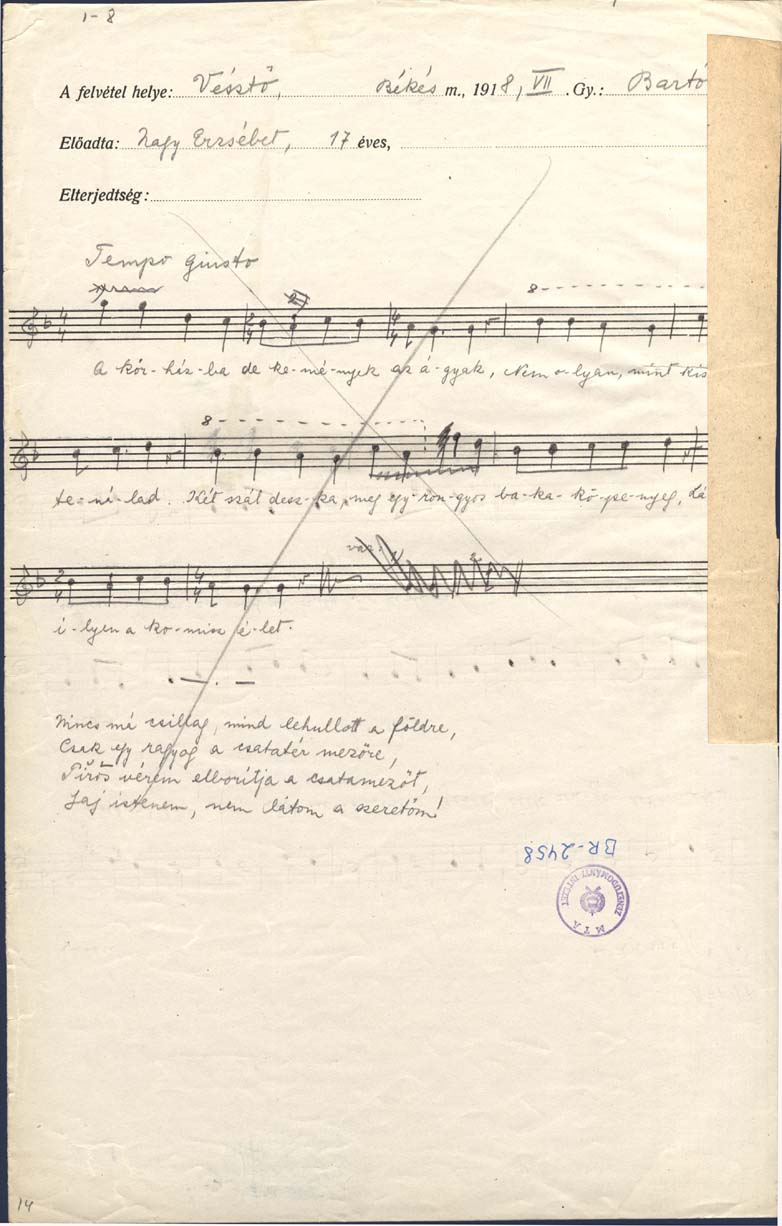 1-8
A felvétel helye: Vésztő, Békés m., 1918, VII. Gy.: Bartó
Előadta: Nagy Erzsébet, 17 éves,
Elterjedtség:
Tempo giusto
8
A kór-ház-ba de ke-mé-nyek az á-gyak, Nem o-lyan, mint kis
8
te-ná-lad. Két szál desz-ka, meg egy ron-gyos ba-ka-kö-pe-nyeg, Lá
var.
i-lyen a ko-misz é-let.
Nincs má csillag, mind lehullott a földre,
Csak egy ragyog a csatatér mezőre,
Pirős vérem elborítja a csatamezőt,
Jaj istenem, nem látom a szeretőm!
BR-2458
MTA ZENETUDOMÁNYI INTÉZET
14